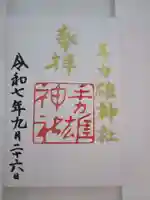 手力雄神社
奉拝
手力雄
神社
令和七年九月二十六日